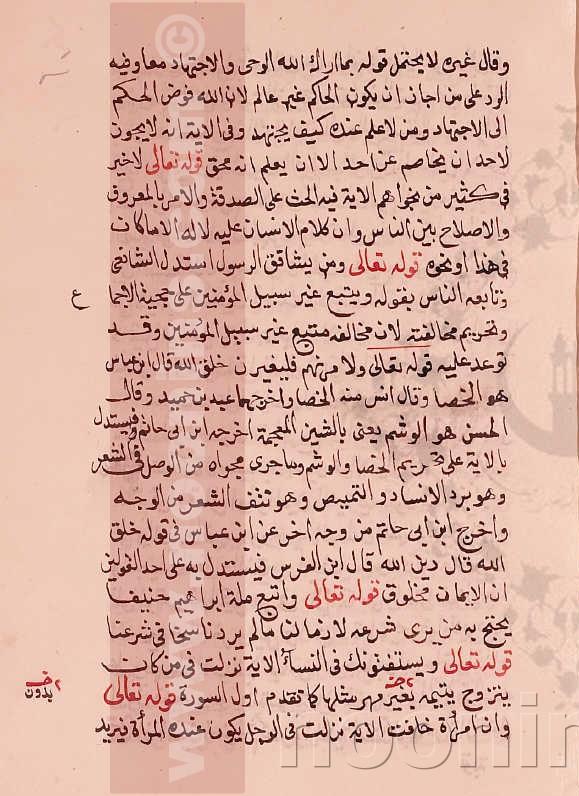 وقال غيره لا يحتمل قوله بما اراك الله الوحى والاجتهاد معا وفيه
الرد على من اجاز ان يكون الحاكم غير عالم لان الله فوض الحكم
الى الاجتهاد ومن لا علم عنده كيف يجتهد وفى الاية انه لا يجوز
لاحد ان يخاصم عن احد الا ان يعلم انه محق قوله تعالى لا خير
فى كثير من نجواهم الاية فيه الحث على الصدقة والامر بالمعروف
والاصلاح بين الناس وان كلام الانسان عليه لا له الا ما كان
فى هذا او نحوه قوله تعالى ومن يشاقق الرسول استدل الشافعى
وتابعه الناس بقوله ويتبع غير سبيل المؤمنين على حجية الاجما
ع
وتحريم مخالفته لان مخالفه متبع غير سبيل المؤمنين وقد
توعد عليه قوله تعالى ولا مرنهم فليغيرن خلق الله قال ابن عباس
هو الخصا وقال انس منه الخصا واخرجهما عبد بن حميد وقال
الحسن هو الوشم يعنى بالشين المعجمة اخرجه ابن ابى حاتم فيستدل
بالاية على تحريم الخصا والوشم وما جرى مجراه من الوصل فى الشعر
وهو برد الاسنان والتنميص وهو نتف الشعر من الوجه
واخرج ابن ابى حاتم من وجه اخر عن ابن عباس فى قوله خلق
الله قال دين الله قال ابن الفرس فيستدل به على احد القولين
ان الايمان مخلوق قوله تعالى واتبع ملة ابراهيم حنيفا
يحتج به من يرى شرعه لازما لنا ما لم يرد ناسخا فى شرعنا
قوله تعالى ويستفتونك فى النسآء الاية نزلت فى من كان
يتزوج يتيمه بغير مهر مثلها كما تقدم اول السورة قوله تعالى
بدون
وان امرأة خافت الاية نزلت فى الرجل يكون عنده المرأة فيريد
noorlir